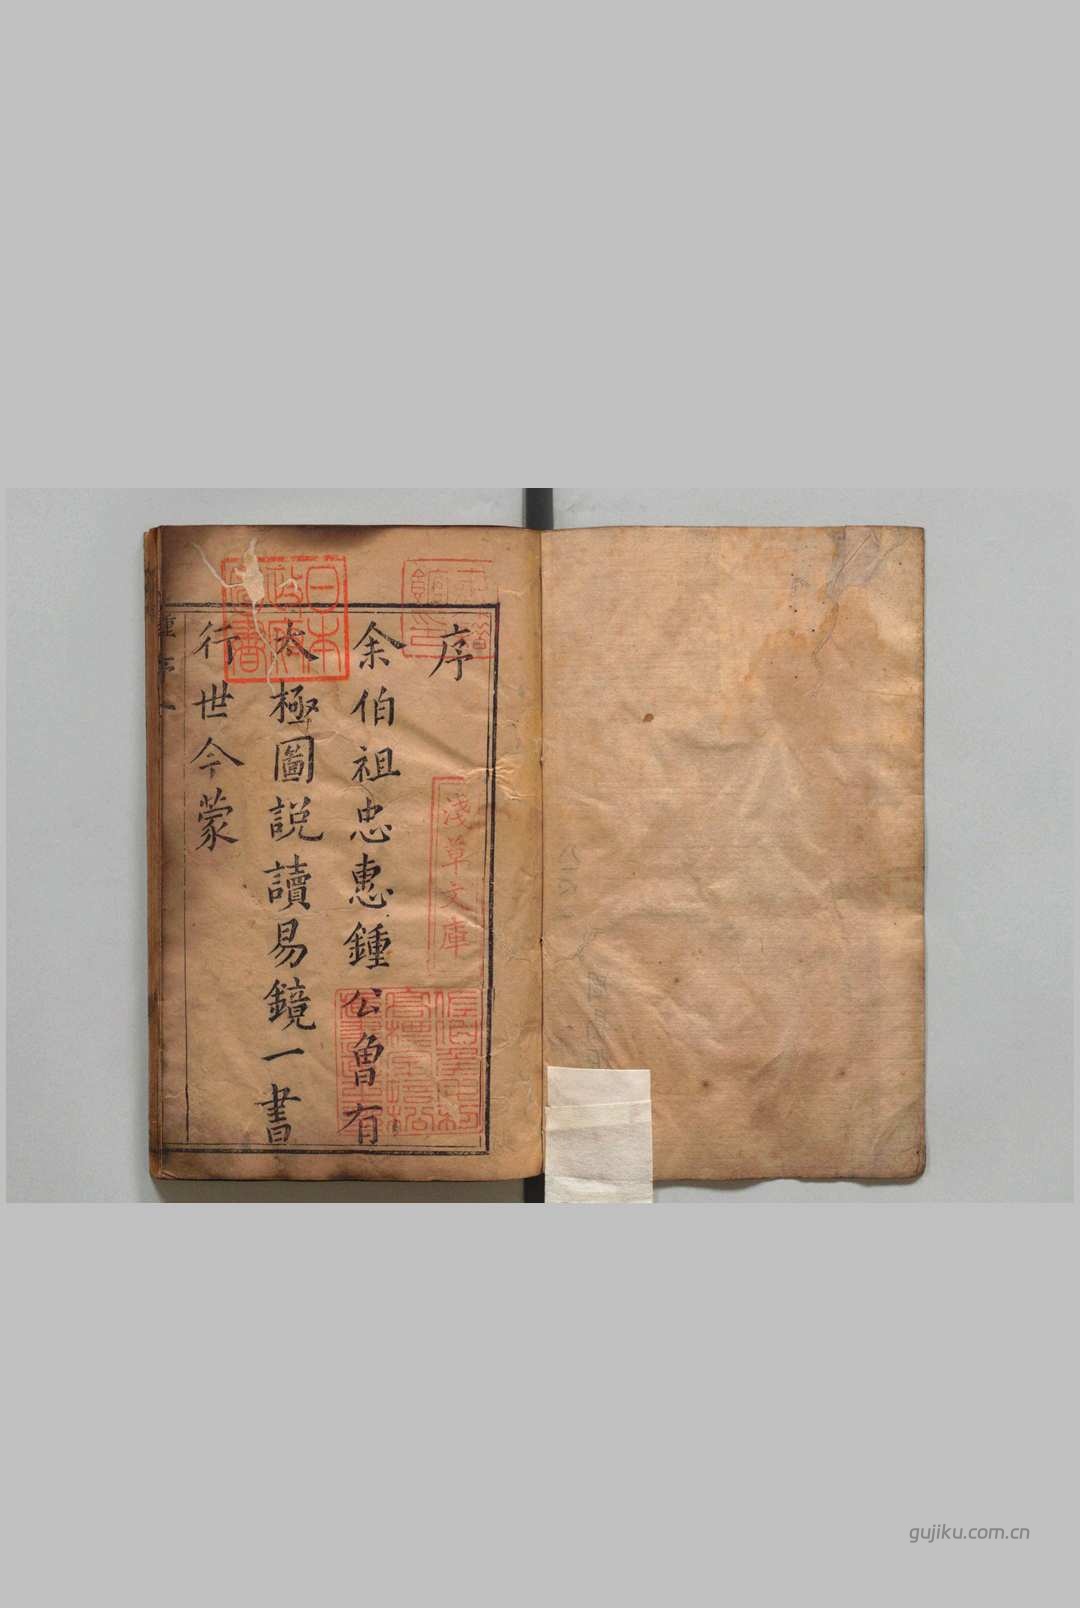 序
余伯祖忠惠鍾公曾有
太極圖説讀易鏡一書
行世今蒙
日本政府圖書
淺草文庫
gujiku.com.cn